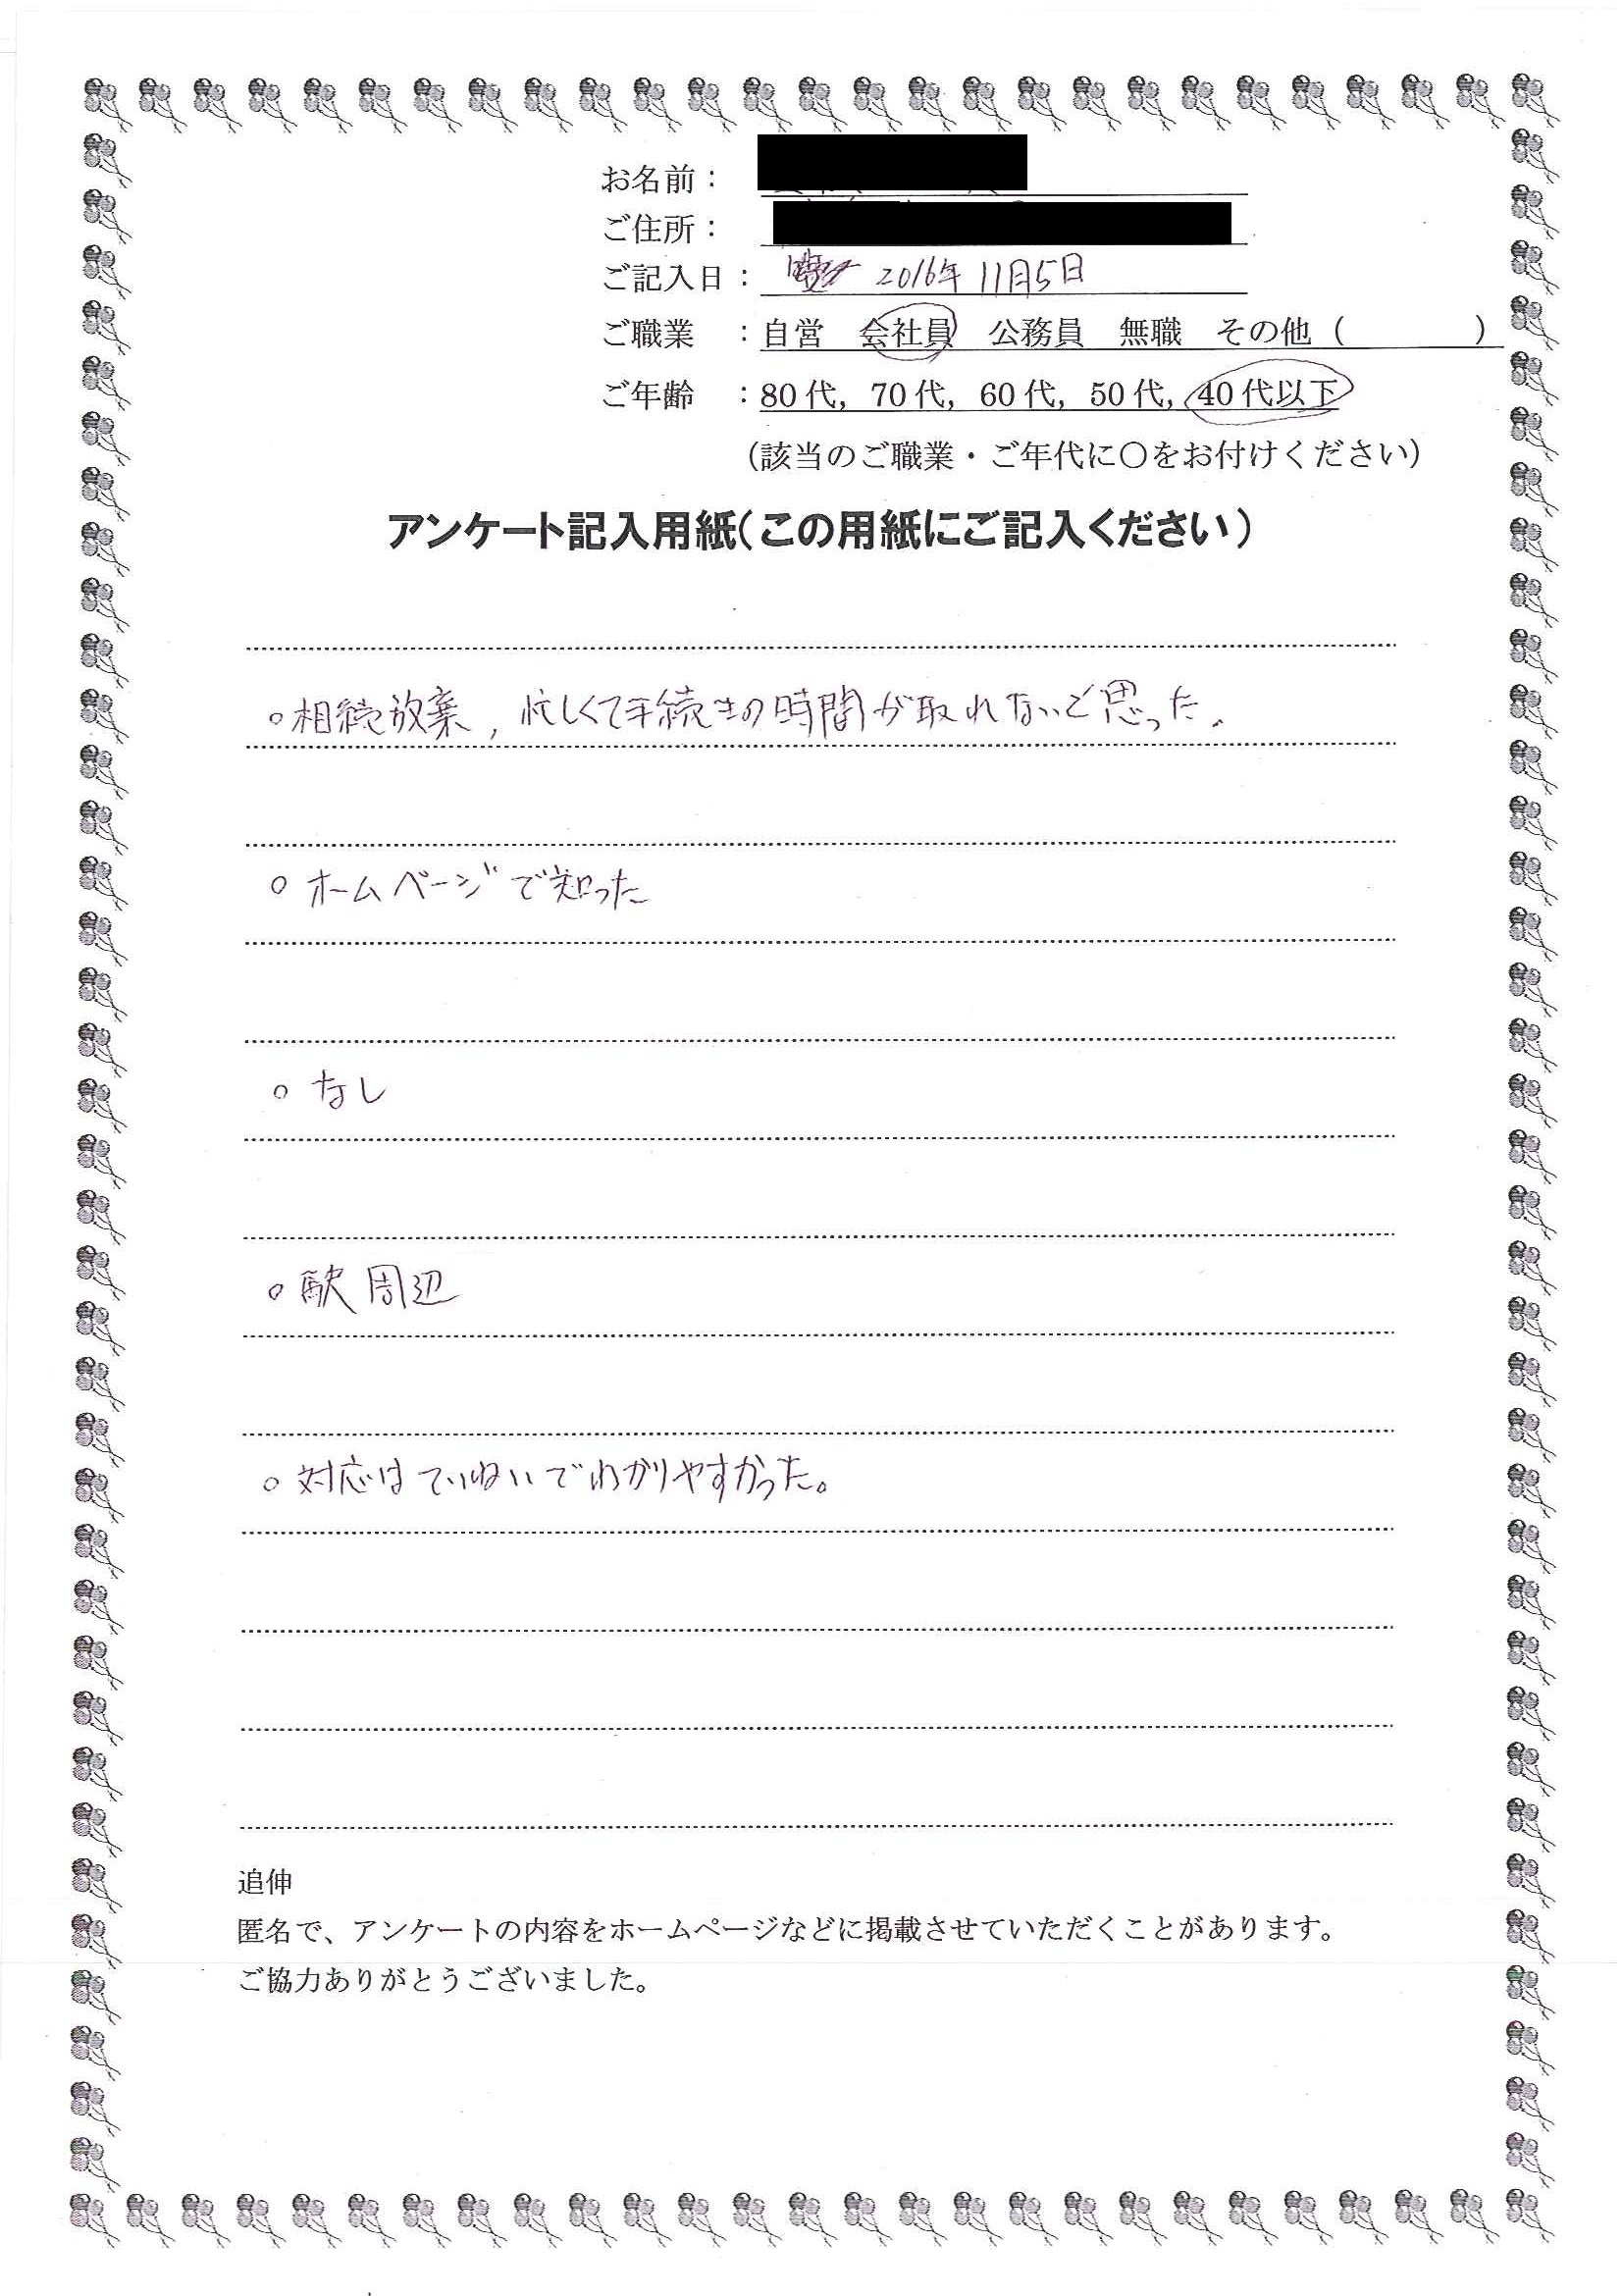 お名前：
ご住所：
ご記入日： 2016年 11月5日
ご職業 ：自営 会社員 公務員 無職 その他（ ）
ご年齢 ：80代，70代，60代，50代，40代以下
（該当のご職業・ご年代に〇をお付けください）
アンケート記入用紙（この用紙にご記入ください）
○相続放棄，忙しくて手続きの時間が取れないと思った。
○ホームページで知った
○なし
○駅周辺
○対応はていねいでわかりやすかった。
追伸
匿名で、アンケートの内容をホームページなどに掲載させていただくことがあります。
ご協力ありがとうございました。